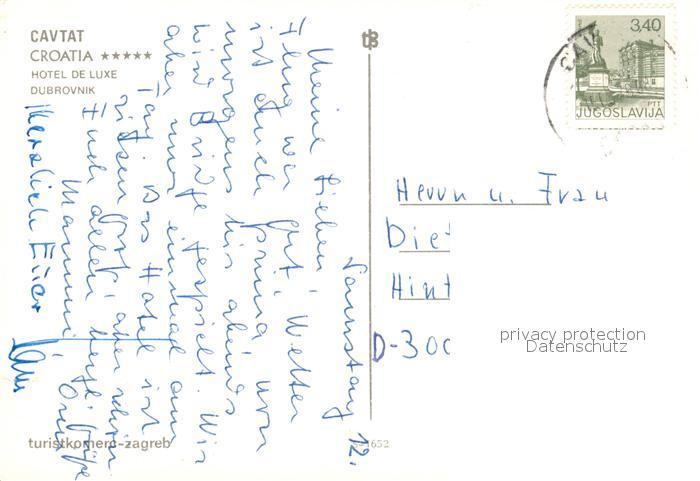 CAVTAT
CROATIA ★★★★★
HOTEL DE LUXE
DUBROVNIK
3,40
PTT
JUGOSLAVIJA
Samstag 12.
Meine Lieben
Flug war gut! Wetter
ist auch prima von
morgens bis abends
wird gespielt. Wir
aber nur einmal am
Tag. Das Hotel ist
riesen groß, aber schön
Euch allen herzl. Grüße
Mammi
Herzlich Euer
Herrn u. Frau
Diet
Hint
D-300
privacy protection
Datenschutz
turistkomerc-zagreb
1652